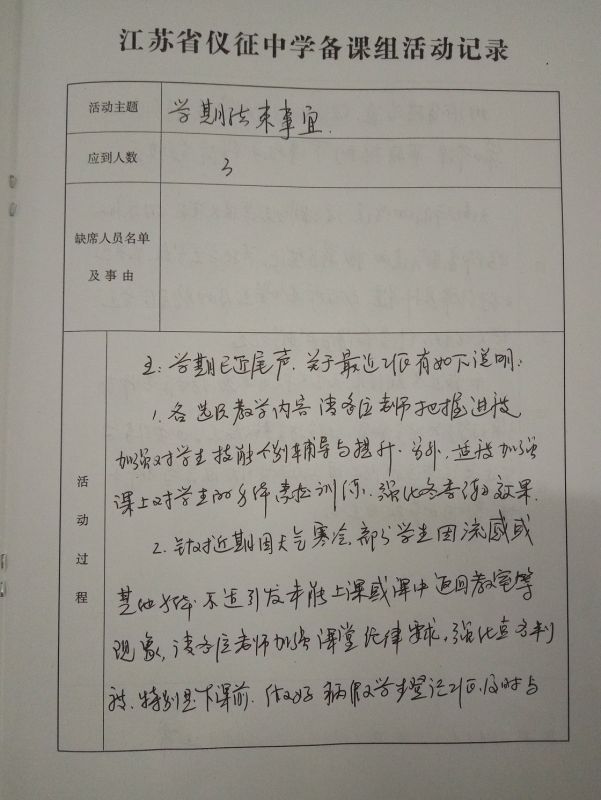 江苏省仪征中学备课组活动记录
活动主题
学期结束事宜.
应到人数
3
缺席人员名单
及事由
活动过程
主: 学期已近尾声. 关于最近工作有如下说明:
1. 各选项教学内容 请各位老师把握进度
加强对学生技能个别辅导与提升. 另外, 适度加强
课上对学生的身体素质训练, 强化冬季锻炼效果.
2. 针对近期因天气寒冷, 部分学生因流感或
其他身体不适引发未能上课或课中返回教室等
现象, 请各位老师加强课堂纪律要求, 强化点名制
度. 特别是下课前. 做好病假学生登记工作. 及时与